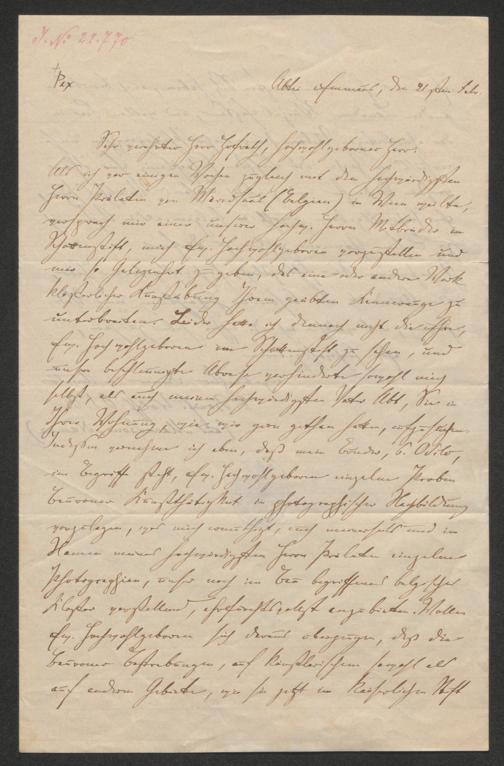 J. No 22.770
Pax
Abtei Emmaus, den 21ten Febr.
Sehr verehrter Herr Hofrath, hochwohlgeborner Herr!
Als ich vor einigen Wochen zugleich mit dem hochwürdigsten
Herrn Prälaten von Maredsous (Belgien) in Wien weilte,
versprach mir einer unserer hochw. Herren Mitbrüder im
Schottenstift, mich Ew. Hochwohlgeboren vorzustellen und
mir so Gelegenheit zu geben, das eine oder andere Werk
klösterlicher Kunstübung Ihrem geübten Kennerauge zu
unterbreiten. Leider hatte ich demnach nicht die Ehre,
Ew. Hochwohlgeboren im Schottenstift zu sehen, und
unsere beschleunigte Abreise verhinderte sowohl mich
selbst, als auch meinen hochwürdigsten Vater Abt, Sie in
Ihrer Wohnung, wie wir gern gethan hätten, aufzusuchen.
Indessen vernehme ich eben, daß mein Bruder, P. Odilo,
im Begriffe steht, Ew. Hochwohlgeboren einzelne Proben
Beuroner Kunstthätigkeit in photographischer Nachbildung
vorzulegen, was mich ermuthigt, auch meinerseits und im
Namen meines hochwürdigsten Herrn Prälaten einzelne
Photographien, unser noch im Bau begriffenes belgisches
Kloster vorstellend, ehrfurchtsvollst anzubieten. Wollen
Ew. Hochwohlgeboren sich daraus überzeugen, daß die
Beuroner Bestrebungen, auf künstlerischem sowohl als
auf anderm Gebiete, wie sie jetzt im Kaiserlichen Stift